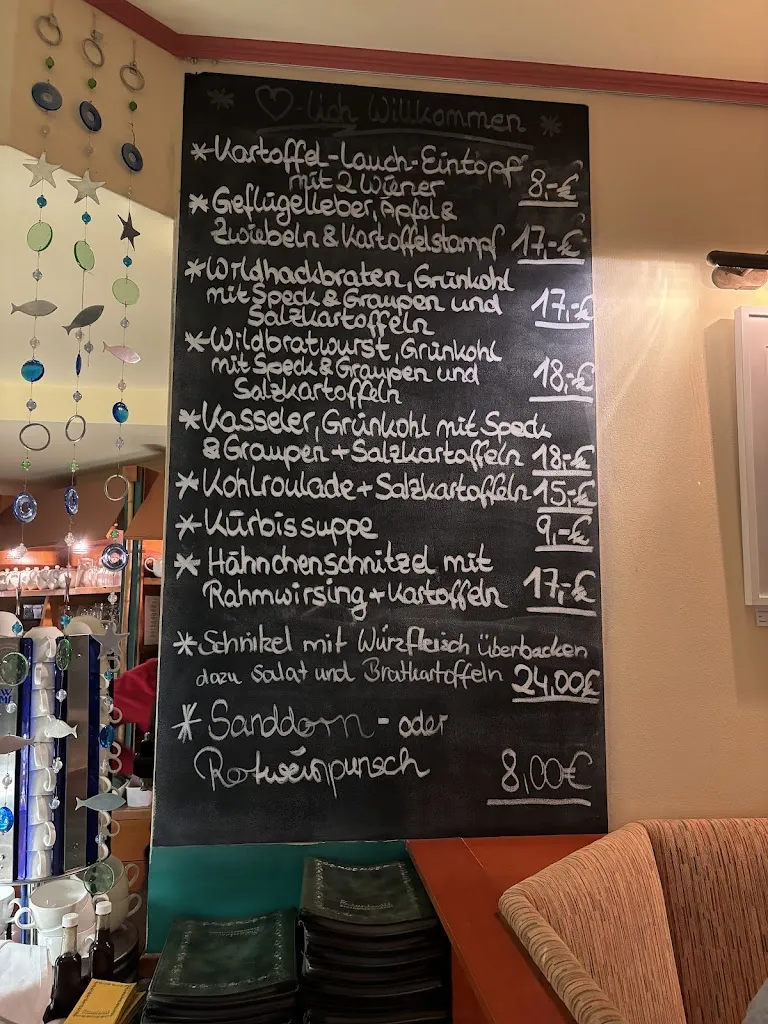 * ♡-lich Willkommen *
* Kartoffel-Lauch-Eintopf
mit 2 Wiener 8,-€
* Geflügelleber, Äpfel &
Zwiebeln & Kartoffelstampf 17,-€
* Wildhackbraten, Grünkohl
mit Speck & Graupen und 17,-€
Salzkartoffeln
* Wildbratwurst, Grünkohl
mit Speck & Graupen und 18,-€
Salzkartoffeln
* Kasseler, Grünkohl mit Speck
& Graupen + Salzkartoffeln 18,-€
* Kohlroulade + Salzkartoffeln 15,-€
* Kürbissuppe 9,-€
* Hähnchenschnitzel mit
Rahmwirsing + Kartoffeln 17,-€
* Schnitzel mit Würzfleisch überbacken
dazu Salat und Bratkartoffeln 24,00€
* Sanddorn- oder
Rotweinpunsch 8,00€